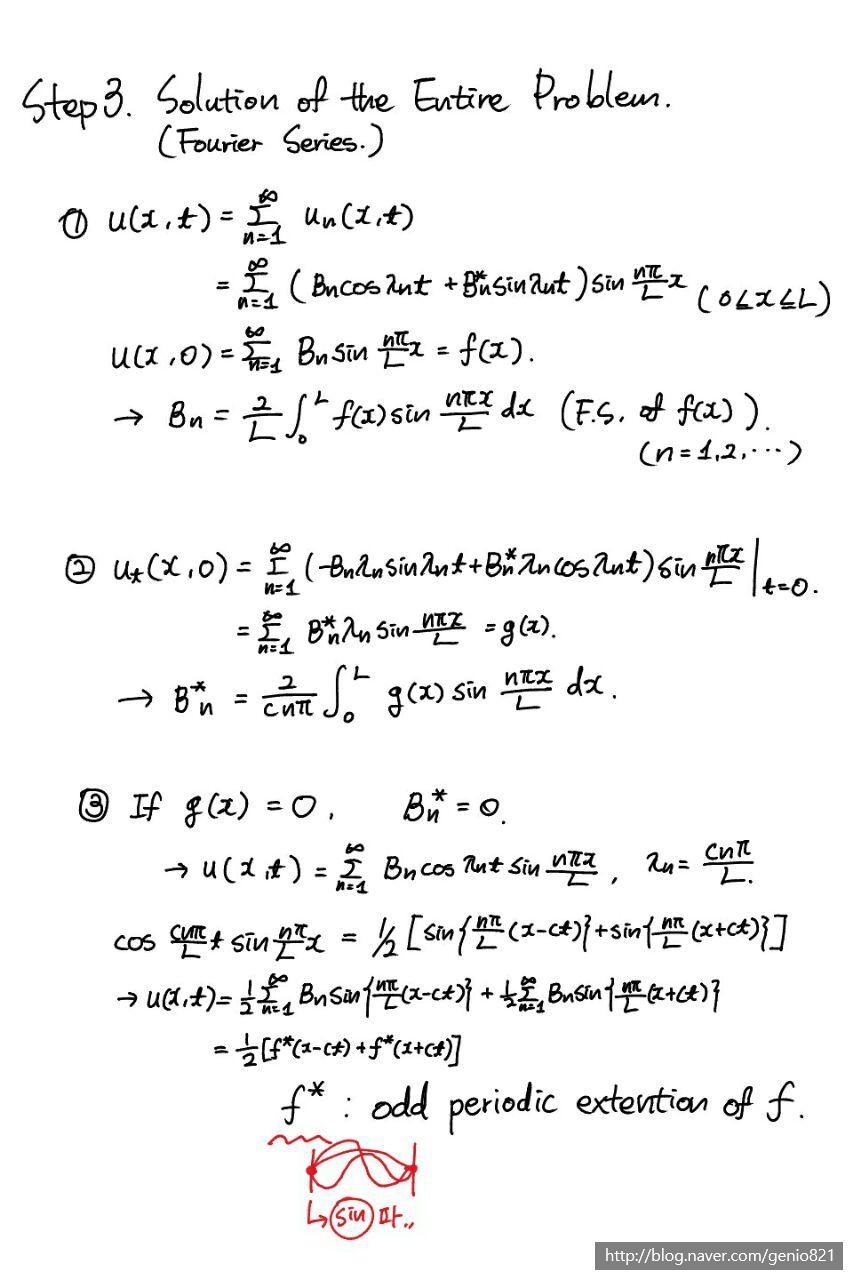 Step 3. Solution of the Entire Problem.
(Fourier Series.)
① u(x,t) = ∑_{n=1}^{∞} u_n(x,t)
= ∑_{n=1}^{∞} (B_n cos λ_n t + B_n^* sin λ_n t) sin \frac{nπ}{L} x (0 ≤ x ≤ L)
u(x,0) = ∑_{n=1}^{∞} B_n sin \frac{nπ}{L} x = f(x).
→ B_n = \frac{2}{L} ∫_0^L f(x) sin \frac{nπx}{L} dx (F.S. of f(x)).
(n = 1,2,⋯)
② u_t(x,0) = ∑_{n=1}^{∞} (-B_n λ_n sin λ_n t + B_n^* λ_n cos λ_n t) sin \frac{nπx}{L} |_{t=0}.
= ∑_{n=1}^{∞} B_n^* λ_n sin \frac{nπx}{L} = g(x).
→ B_n^* = \frac{2}{cnπ} ∫_0^L g(x) sin \frac{nπx}{L} dx.
③ If g(x) = 0, B_n^* = 0.
→ u(x,t) = ∑_{n=1}^{∞} B_n cos λ_n t sin \frac{nπx}{L}, λ_n = \frac{cnπ}{L}.
cos \frac{cnπ}{L} t sin \frac{nπ}{L} x = 1/2 [sin{\frac{nπ}{L}(x-ct)} + sin{\frac{nπ}{L}(x+ct)}]
→ u(x,t) = \frac{1}{2} ∑_{n=1}^{∞} B_n sin{\frac{nπ}{L}(x-ct)} + \frac{1}{2} ∑_{n=1}^{∞} B_n sin{\frac{nπ}{L}(x+ct)}
= \frac{1}{2} [f*(x-ct) + f*(x+ct)]
f* : odd periodic extention of f.
↳ sin 파..
http://blog.naver.com/genio821